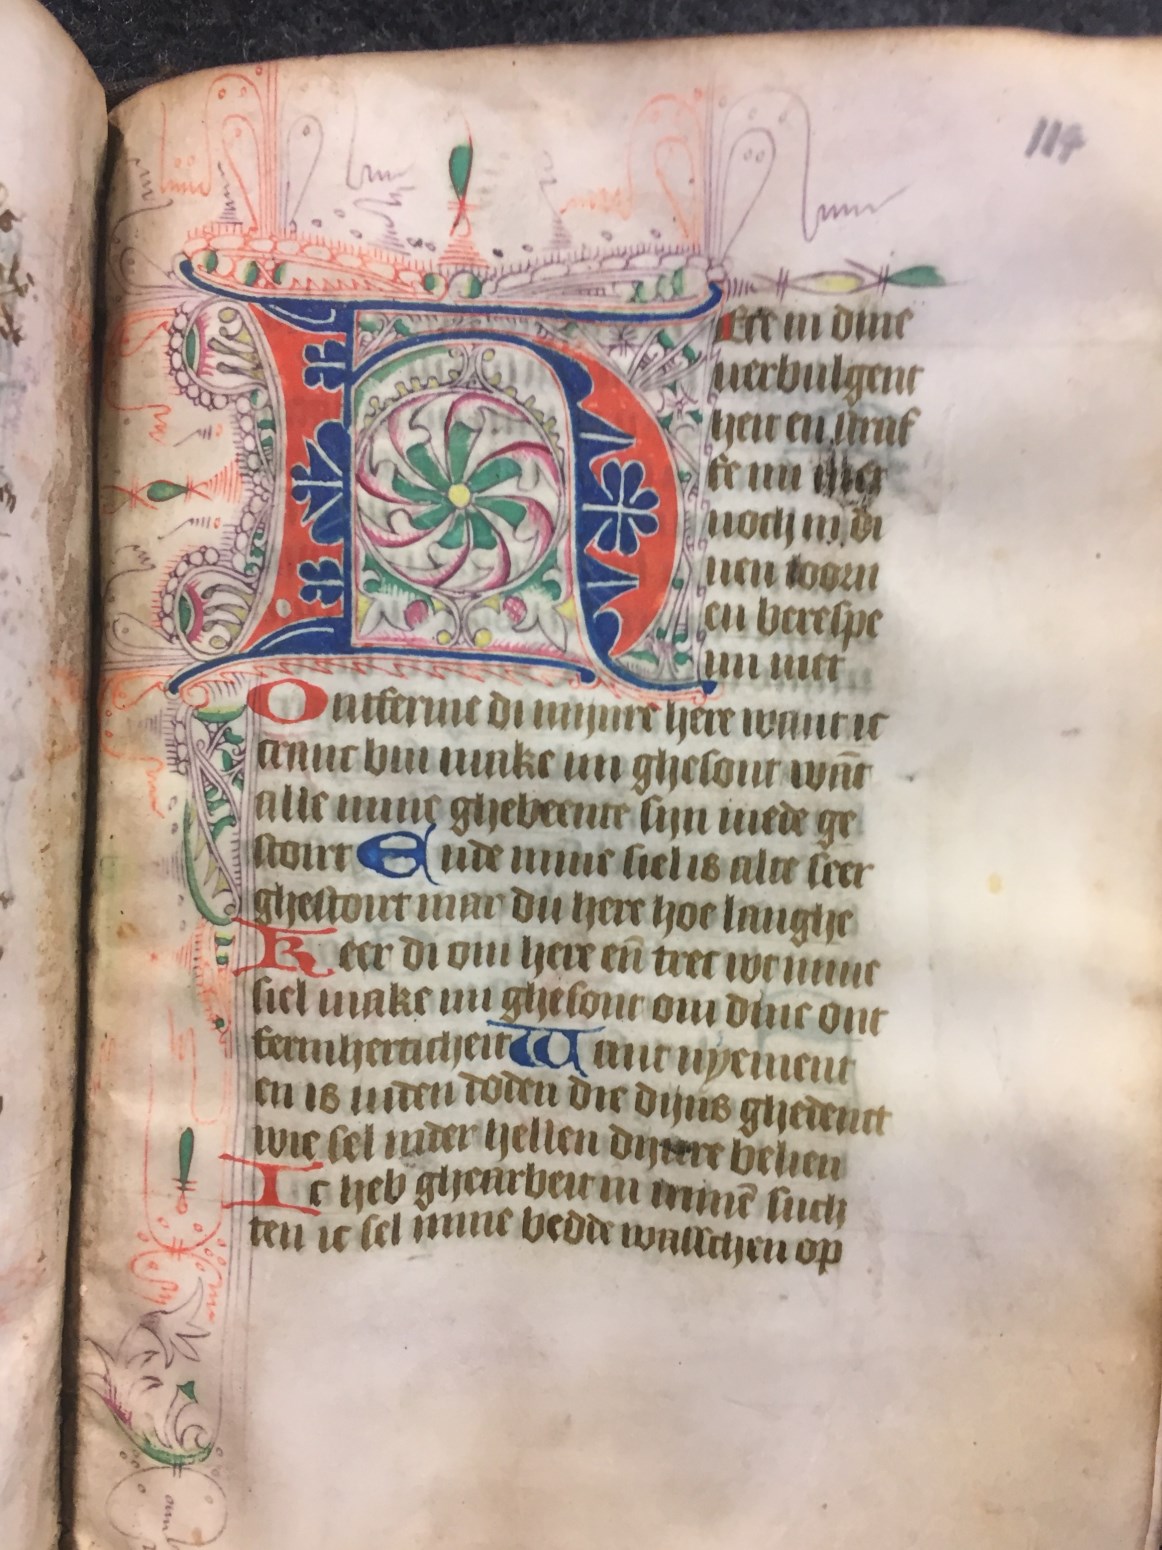 114
HEre in dine
verbulgent
heit en straf
fe mi niet
noch in di
nen toorn
en berespe
mi niet
Ontferme di mijnre here want ic
cranc bin make mi ghesont wāt
alle mine ghebeente sijn mede ge
stoirt Ende mine siel is alte seer
ghestoirt mar du here hoe langhe
Keer di om here eñ trec wt mine
siel make mi ghesont om dine ont
fermherticheit Want nyement
en is inden doden die dijns ghedenct
wie sel inder hellen dijnre belien
Ic heb ghearbeit in minē such
ten ic sel mine bedde wasschen op